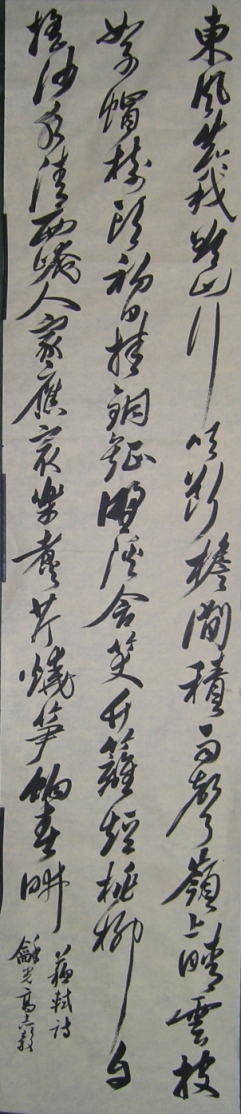 東風知我欲山行吹斷檐間積雨聲嶺上晴雲披
絮帽樹頭初日挂銅鉦野溪含笑竹籬短桃柳自
搖沙水清西崦人家應最樂煮芹燒筍餉春耕
蘇軾詩